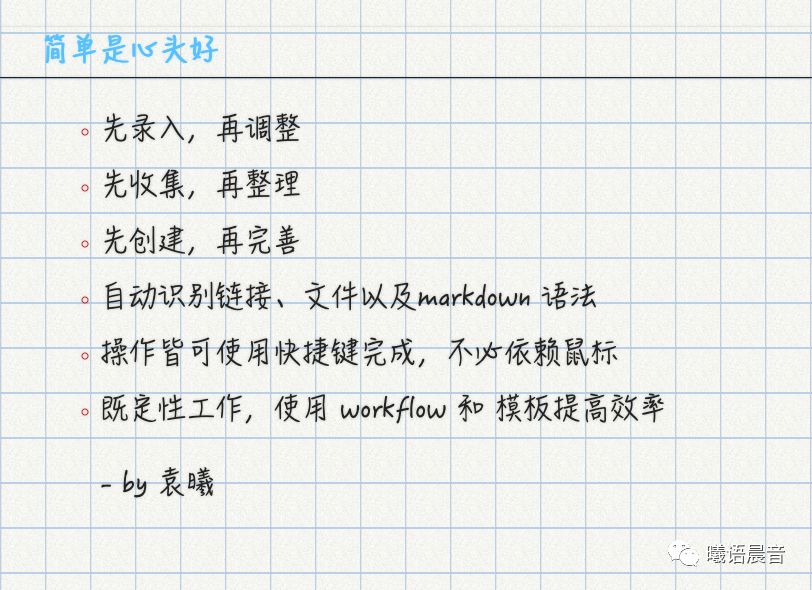 简单是心头好
先录入，再调整
先收集，再整理
先创建，再完善
自动识别链接、文件以及markdown 语法
操作皆可使用快捷键完成，不必依赖鼠标
既定性工作，使用 workflow 和 模板提高效率
- by 袁曦
曦语晨音